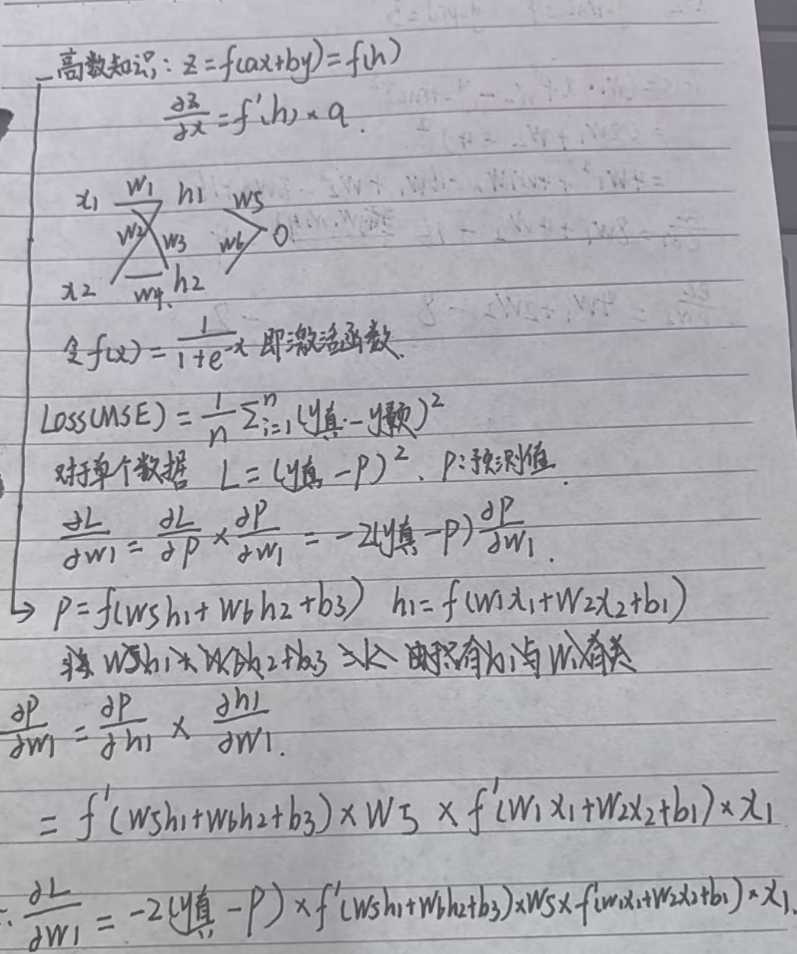 高数知识: z=f(ax+by)=f(h)
∂z/∂x=f'(h)×a.
x1 w1 h1 w5
w2 w3 w6 0
x2 w4 h2
令f(x)=1/(1+e^-x) 即激活函数.
Loss(MSE)=1/n Σ_{i=1}^n (y真-y预)²
对于单个数据 L=(y真-P)². P:预测值.
∂L/∂w1=∂L/∂P×∂P/∂w1=-2(y真-P)∂P/∂w1.
P=f(w5h1+w6h2+b3) h1=f(w1x1+w2x2+b1)
w5h1+w6h2+b3 只有h1与w1有关
∂P/∂w1=∂P/∂h1×∂h1/∂w1.
=f'(w5h1+w6h2+b3)×w5×f'(w1x1+w2x2+b1)×x1
∴∂L/∂w1=-2(y真-P)×f'(w5h1+w6h2+b3)×w5×f'(w1x1+w2x2+b1)×x1.